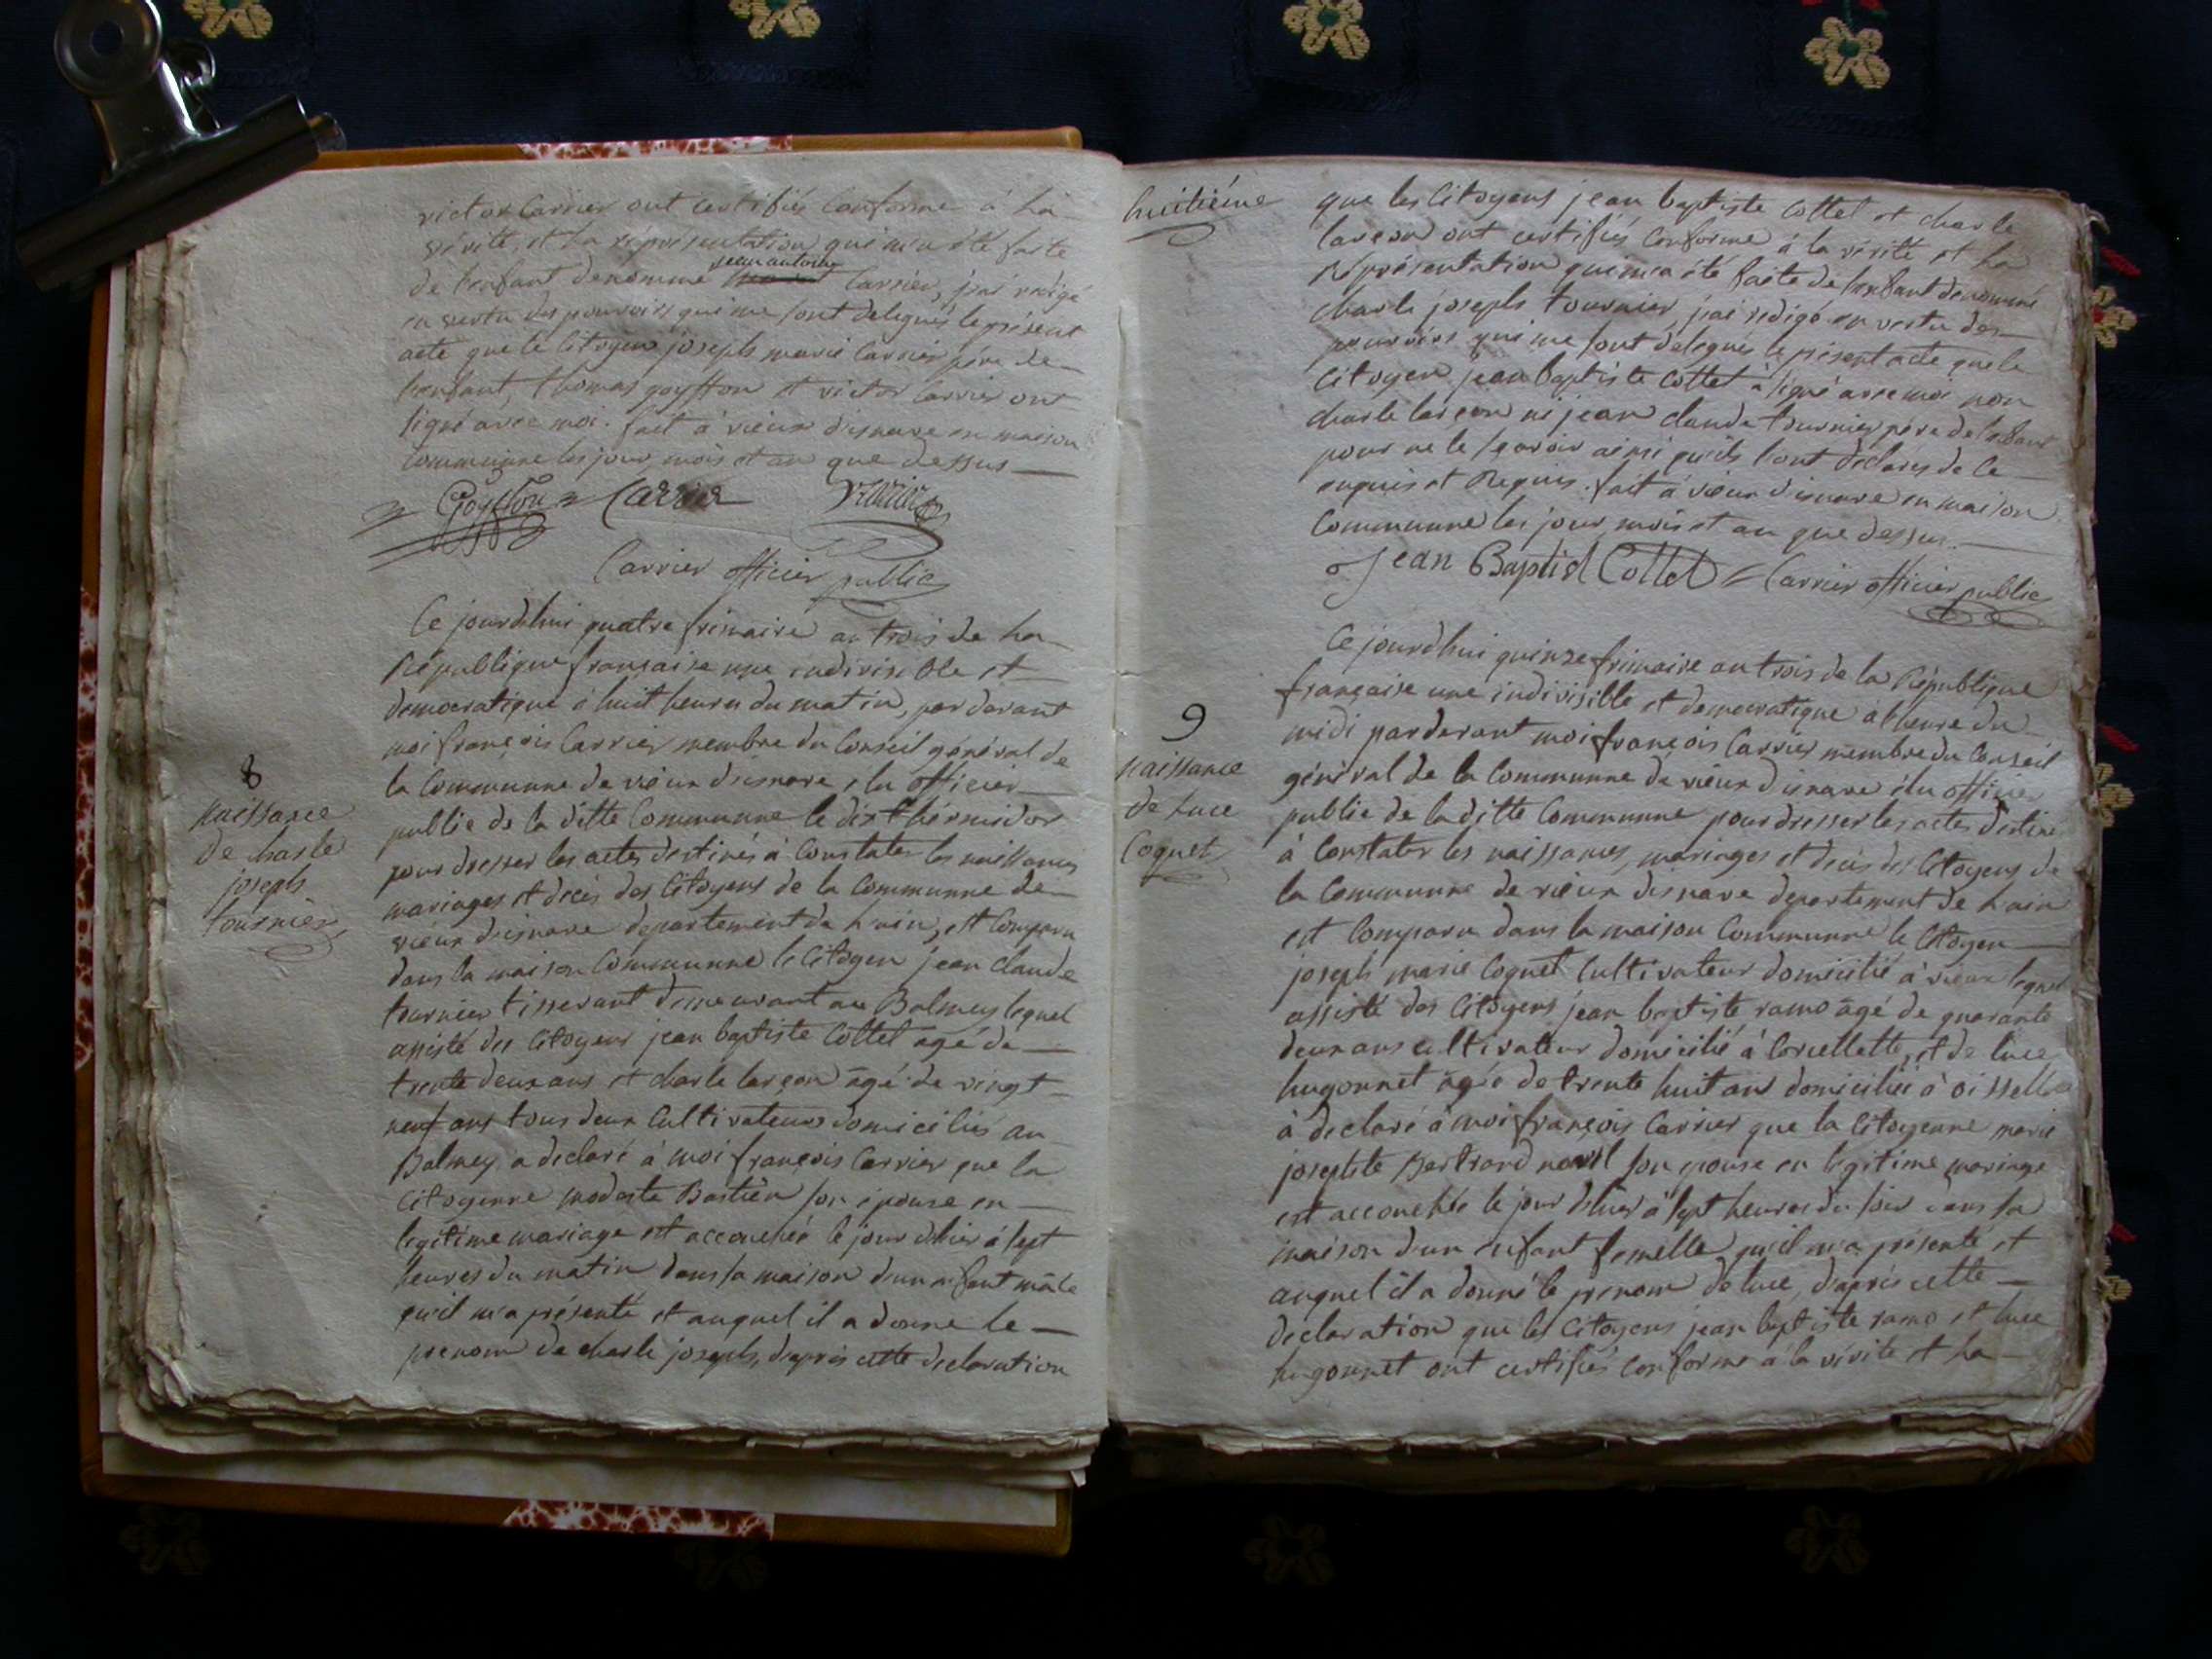 victor Carrier ont certifiés Conforme à la
vérité, et la réprésentation qui m'a été faite
jean antoine
de l'enfant denommé Carrier, j'ai redigé
en vertu des pouvoirs qui me sont delegués le présent
acte que le Citoyen joseph marie Carrier père de
l'enfant, thomas goyffon et victor Carrier ont
signé avec moi. fait à vieux d'isnave en maison
Communne les jour, mois et an que dessus
Goyffon Carrier
Carrier officier public
8
naissance
de charle
joseph
tournier
Ce jourd'hui quatre frimaire an trois de la
République française une indivisible et
democratique à huit heures du matin, par devant
moi françois Carrier membre du Conseil général de
la Communne de vieux d'isnave élu officier
public de la ditte Communne le dix thérmidor
pour dresser les actes destinés à Constater les naissances
mariages et décès des Citoyens de la Communne de
vieux d'isnave departement de l'ain, est Comparu
dans la maison Communne le Citoyen jean claude
tournier tisserant demeurant au Balmey lequel
assisté des Citoyens jean baptiste Collet agé de
trente deux ans et charle larçon âgé de vingt
neuf ans tous deux Cultivateurs domiciliés au
Balmey, a declaré à moi françois Carrier que la
Citoyenne modeste Bastien son épouse en
legitime mariage est accouchée le jour d'hier à sept
heures du matin dans sa maison d'un enfant mâle
qu'il m'a présenté et auquel il a donné le
prenom de charle joseph, d'après cette declaration
huitiéme
que les Citoyens jean baptiste Collet et charle
larçon ont certifiés Conforme à la vérité et la
Réprésentation qui m'a été faite de l'enfant denommé
charle joseph tournier, j'ai redigé en vertu des
pouvoirs qui me sont delegués le présent acte que le
Citoyen jean baptiste Collet à signé avec moi non
charle larçon ni jean claude tournier père de l'enfant
pour ne le sçavoir ainsi qu'ils l'ont déclarés de ce
enquis et Requis. fait à vieux d'isnave en maison
Communne les jour, mois et an que dessus.
Jean Baptist Collet Carrier officier public
9
naissance
de luce
Coquet
Ce jourd'hui quinze frimaire an trois de la République
française une indivisible et democratique à l'heure du
midi par devant moi françois Carrier membre du Conseil
général de la Communne de vieux d'isnave élu officier
public de la ditte Communne pour dresser les actes destinés
à Constater les naissances, mariages et decès des Citoyens de
la Communne de vieux d'isnave departement de l'ain
est Comparu dans la maison Communne le Citoyen
joseph marie Coquet Cultivateur domicilié à vieux lequel
assisté des Citoyens jean baptiste ramo âgé de quarante
deux ans cultivateur domicilié à Corcellette, et de luce
hugonnet âgée de trente huit ans domiciliée à oisselle
à declaré à moi françois Carrier que la Citoyenne marie
josephte Bertrand son epouse en legitime mariage
est accouchée le jour d'hier à sept heures du soir dans sa
maison d'un enfant femelle qu'il m'a présenté et
auquel il a donné le prenom de luce, d'après cette
declaration que les Citoyens jean baptiste ramo et luce
hugonnet ont certifiés conforme à la vérité et la